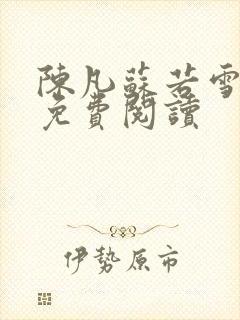 陳凡蘇若雪
免費閱讀
伊勢原市